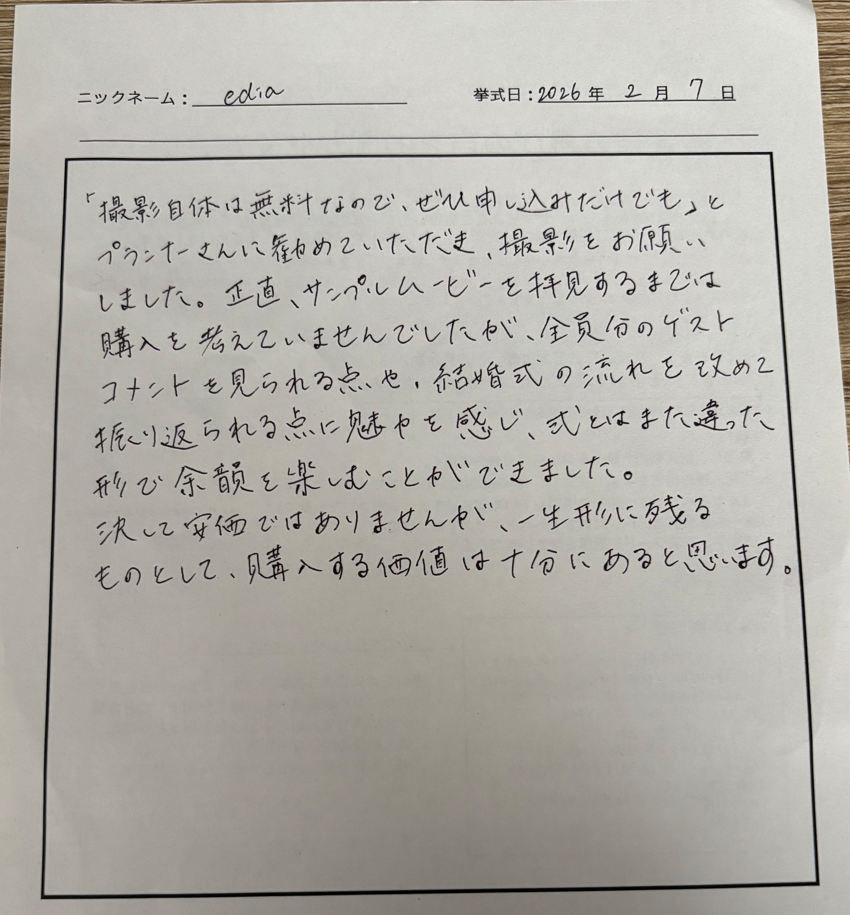 ニックネーム： edia 挙式日：2026年 2月 7日
「撮影自体は無料なので、ぜひ申し込みだけでも」と
プランナーさんに勧めていただき、撮影をお願い
しました。正直、サンプルムービーを拝見するまでは
購入を考えていませんでしたが、全員分のゲスト
コメントを見られる点や、結婚式の流れを改めて
振り返られる点に魅力を感じ、式とはまた違った
形で余韻を楽しむことができました。
決して安価ではありませんが、一生形に残る
ものとして、購入する価値は十分にあると思います。